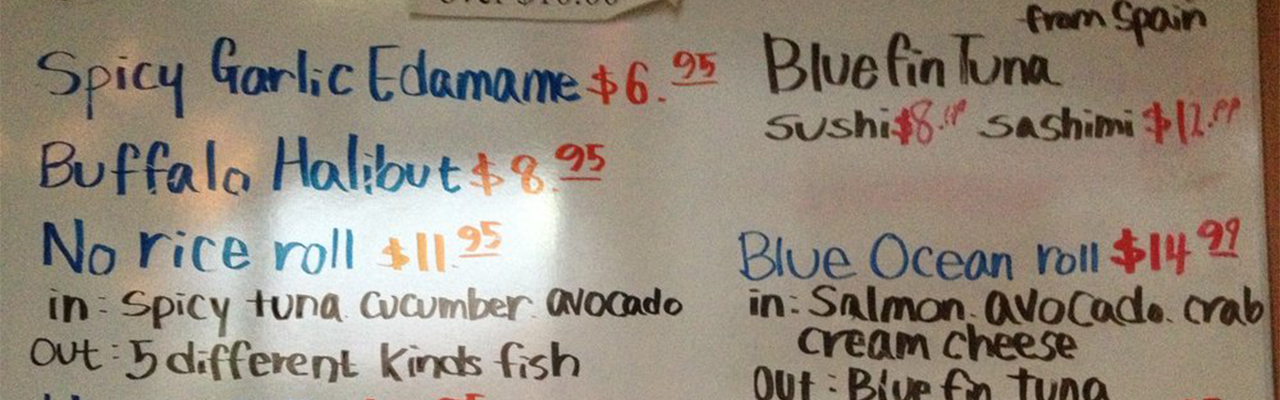 Spicy Garlic Edamame $6.95
Buffalo Halibut $8.95
No rice roll $11.95
in: Spicy tuna. cucumber. avocado
out: 5 different kinds fish
from Spain
Bluefin Tuna
sushi $8. sashimi $12.
Blue Ocean roll $14.99
in: Salmon. avocado. crab
cream cheese
out: Blue fin tuna